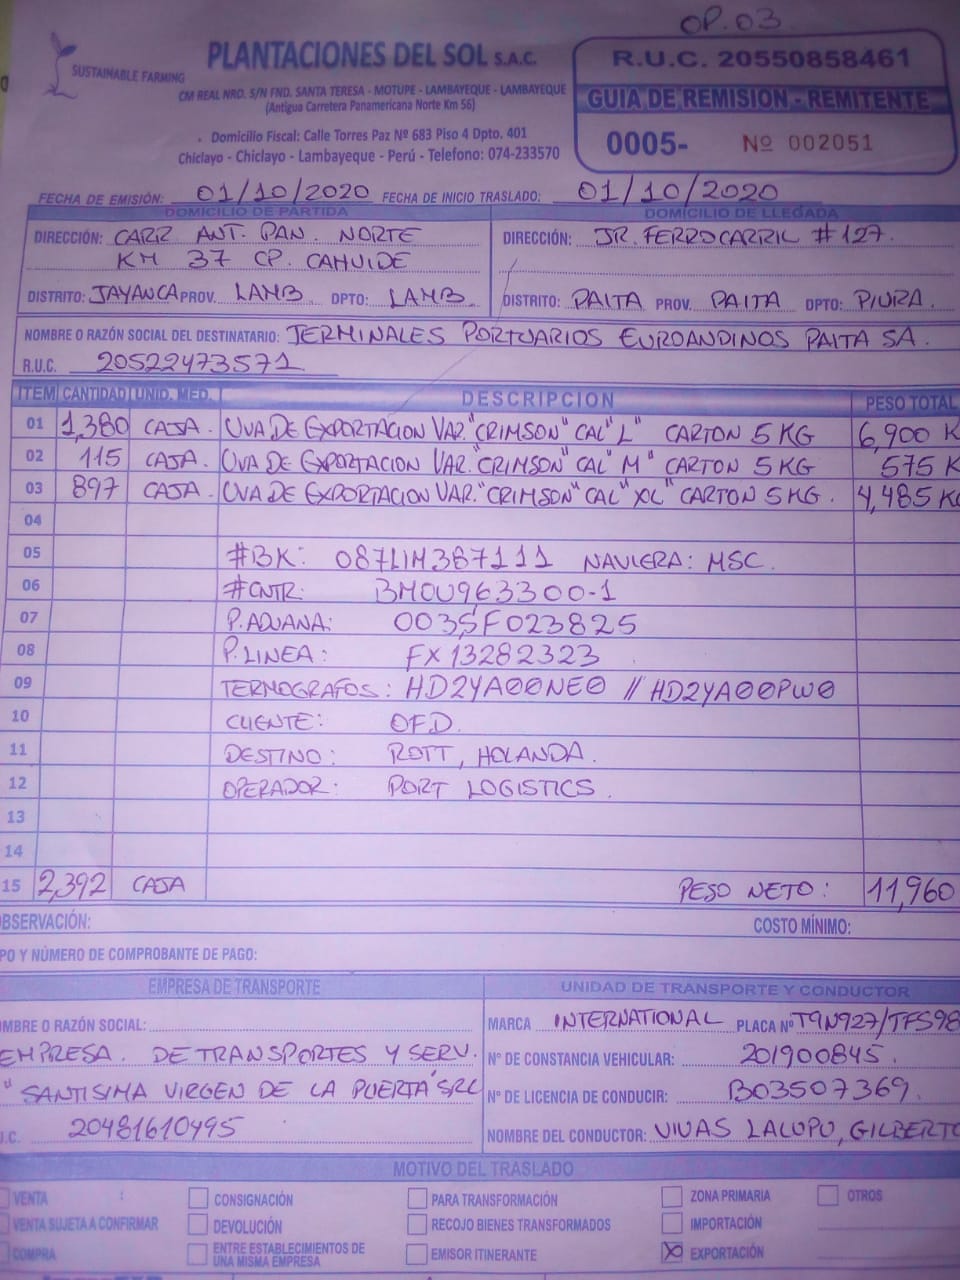 OP.03
SUSTAINABLE FARMING
PLANTACIONES DEL SOL S.A.C.
CM REAL NRO. S/N FND. SANTA TERESA - MOTUPE - LAMBAYEQUE - LAMBAYEQUE
(Antigua Carretera Panamericana Norte Km 56)
Domicilio Fiscal: Calle Torres Paz Nº 683 Piso 4 Dpto. 401
Chiclayo - Chiclayo - Lambayeque - Perú - Telefono: 074-233570
R.U.C. 20550858461
GUIA DE REMISION - REMITENTE
0005- Nº 002051
FECHA DE EMISIÓN: 01/10/2020 FECHA DE INICIO TRASLADO: 01/10/2020
DOMICILIO DE PARTIDA
DIRECCIÓN: CARR ANT. PAN. NORTE
KM 37 CP. CAHUIDE
DISTRITO: JAYANCA PROV. LAMB DPTO: LAMB.
DOMICILIO DE LLEGADA
DIRECCIÓN: JR. FERROCARRIL # 127.
DISTRITO: PAITA PROV. PAITA DPTO: PIURA.
NOMBRE O RAZÓN SOCIAL DEL DESTINATARIO: TERMINALES PORTUARIOS EUROANDINOS PAITA SA.
R.U.C. 20522473571
ITEM CANTIDAD UNID. MED. DESCRIPCION PESO TOTAL
01 1,380 CAJA. UVA DE EXPORTACION VAR. "CRIMSON" CAL "L" CARTON 5 KG 6,900 K
02 115 CAJA. UVA DE EXPORTACION VAR. "CRIMSON" CAL "M" CARTON 5 KG 575 K
03 897 CAJA. UVA DE EXPORTACION VAR. "CRIMSON" CAL "XL" CARTON 5 KG. 4,485 KG
04
05 #BK: 087LIM387111 NAVIERA: MSC.
06 #CNTR: BMOU963300-1
07 P. ADUANA: 0035F023825
08 P. LINEA: FX13282323
09 TERMOGRAFOS: HD2YA00NE0 // HD2YA00PW0
10 CLIENTE: OFD.
11 DESTINO: ROTT, HOLANDA.
12 OPERADOR: PORT LOGISTICS.
13
14
15 2,392 CAJA PESO NETO: 11,960
OBSERVACIÓN: COSTO MÍNIMO:
PO Y NÚMERO DE COMPROBANTE DE PAGO:
EMPRESA DE TRANSPORTE
OMBRE O RAZÓN SOCIAL:
EMPRESA. DE TRANSPORTES Y SERV.
"SANTISIMA VIRGEN DE LA PUERTA" SRL
U.C. 20481610495
UNIDAD DE TRANSPORTE Y CONDUCTOR
MARCA INTERNATIONAL PLACA Nº T9N927/TFS98
Nº DE CONSTANCIA VEHICULAR: 201900845.
Nº DE LICENCIA DE CONDUCIR: B03507369.
NOMBRE DEL CONDUCTOR: VIVAS LALUPU, GILBERTO
MOTIVO DEL TRASLADO
VENTA CONSIGNACIÓN PARA TRANSFORMACIÓN ZONA PRIMARIA OTROS
VENTA SUJETA A CONFIRMAR DEVOLUCIÓN RECOJO BIENES TRANSFORMADOS IMPORTACIÓN
COMPRA ENTRE ESTABLECIMIENTOS DE UNA MISMA EMPRESA EMISOR ITINERANTE X EXPORTACIÓN